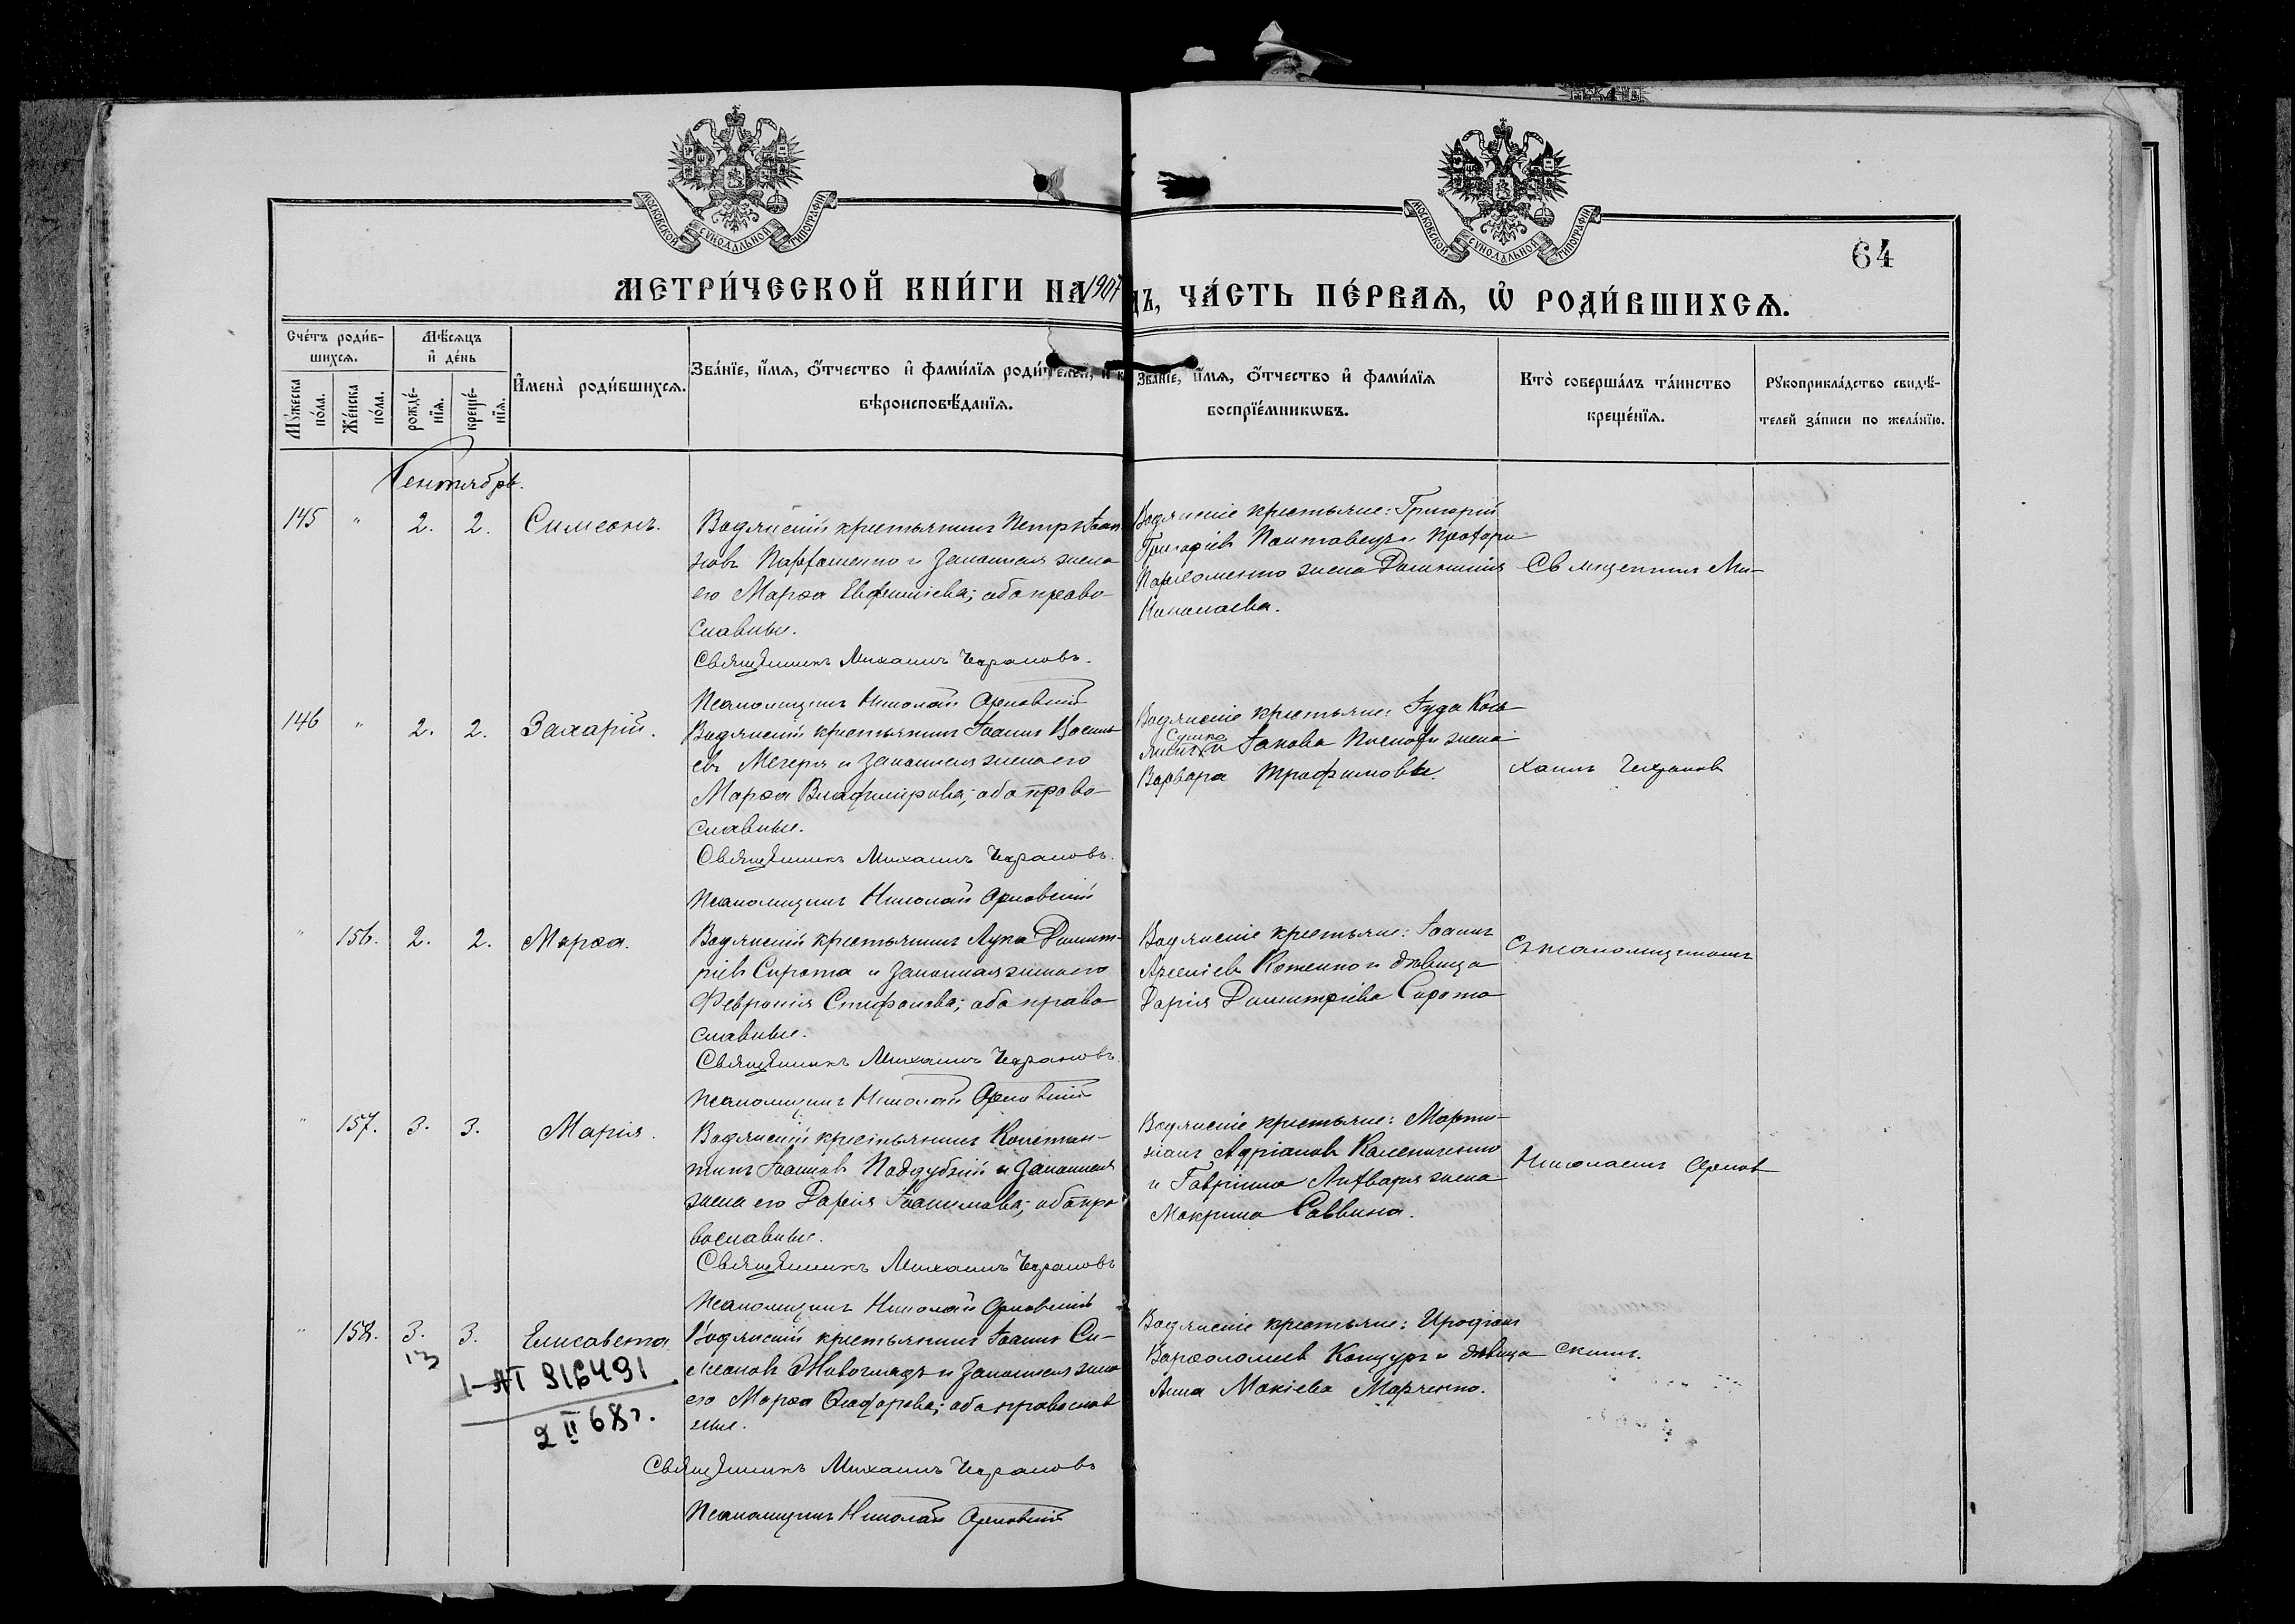 МОСКОВСКОЙ СѴНОДАЛЬНОЙ ТИПОГРАФІИ
МОСКОВСКОЙ СѴНОДАЛЬНОЙ ТИПОГРАФІИ
64
МЕТРИ́ЧЕСКОЙ КНИ́ГИ НА 1907
ДЪ, ЧА́СТЬ ПЕ́РВАѦ, Ѡ҆ РОДИ́ВШИХСѦ.
Сче́тъ роди́в-
шихсѧ.
Мѣ́сѧцъ
и҆ де́нь
Мꙋ́жеска
по́ла.
Же́нска
по́ла.
рожде́-
нїѧ.
креще́-
нїѧ.
И҆мена̀ роди́вшихсѧ.
Зва́нїе, и҆́мѧ, ѻ҆́тчество и҆ фами́лїѧ роди́телей, и҆ к
вѣроисповѣ́данїѧ.
Зва́нїе, и҆́мѧ, ѻ҆́тчество и҆ фами́лїѧ
воспрїе́мникѡвъ.
Кто̀ соверша́лъ та́инство
креще́нїѧ.
Рꙋкоприкла́дство свидѣ́-
телей за́писи по жела́нїю.
Сентябрь.
145 " 2. 2. Симеонъ.
Водянскій крестьянинъ Петръ Іоан-
новъ Парфоменко и законная жена
его Марѳа Евфиміева; оба право-
славные.
Священникъ Михаилъ Чехрановъ.
Псаломщикъ Николай Орловскій
Водянскіе крестьяне: Григорій
Григоріевъ
Пархоменко жена
Николаева.
Священникъ Ми-
146 " 2. 2. Захарій.
Водянскій крестьянинъ Іоаннъ Васильевъ
Мегеря и законная жена его
Марѳа Владимірова; оба право-
славные.
Священникъ Михаилъ Чехрановъ.
Псаломщикъ Николай Орловскій
Водянскіе крестьяне: Іуда
Сушко
и Іакова жена
Варвара Трофимова.
хаилъ Чехрановъ
" 156. 2. 2. Марѳа.
Водянскій крестьянинъ Лука Димит-
ріевъ Сирота и законная жена его
Февронія Стефанова; оба право-
славные.
Священникъ Михаилъ Чехрановъ.
Псаломщикъ Николай Орловскій
Водянскіе крестьяне: Іоаннъ
Алексіевъ Коженко и дѣвица
Дарія Димитріева Сирота
съ псаломщикомъ
" 157. 3. 3. Марія.
Водянскій крестьянинъ Констан-
тинъ Іоанновъ Поддубный и законная
жена его Дарія Іоакимова; оба пра-
вославные.
Священникъ Михаилъ Чехрановъ
Псаломщикъ Николай Орловскій
Водянскіе крестьяне: Марти-
ніанъ Адріановъ Калениченко
и Гавріила Литваря жена
Макрина Саввина.
Николаемъ Орлов
" 158. 3. 3. Елисавета.
13
I-АП 316491
2 II 68г.
Водянскій крестьянинъ Іоаннъ Си-
меоновъ Живогладъ и законная жена
его Марѳа Ѳеодорова; оба православ
ные.
Священникъ Михаилъ Чехрановъ
Псаломщикъ Николай Орловскій
Водянскіе крестьяне: Иродіонъ
Варѳоломеевъ Коцуръ и дѣвица
Анна Мокіева Марченко.
скимъ.